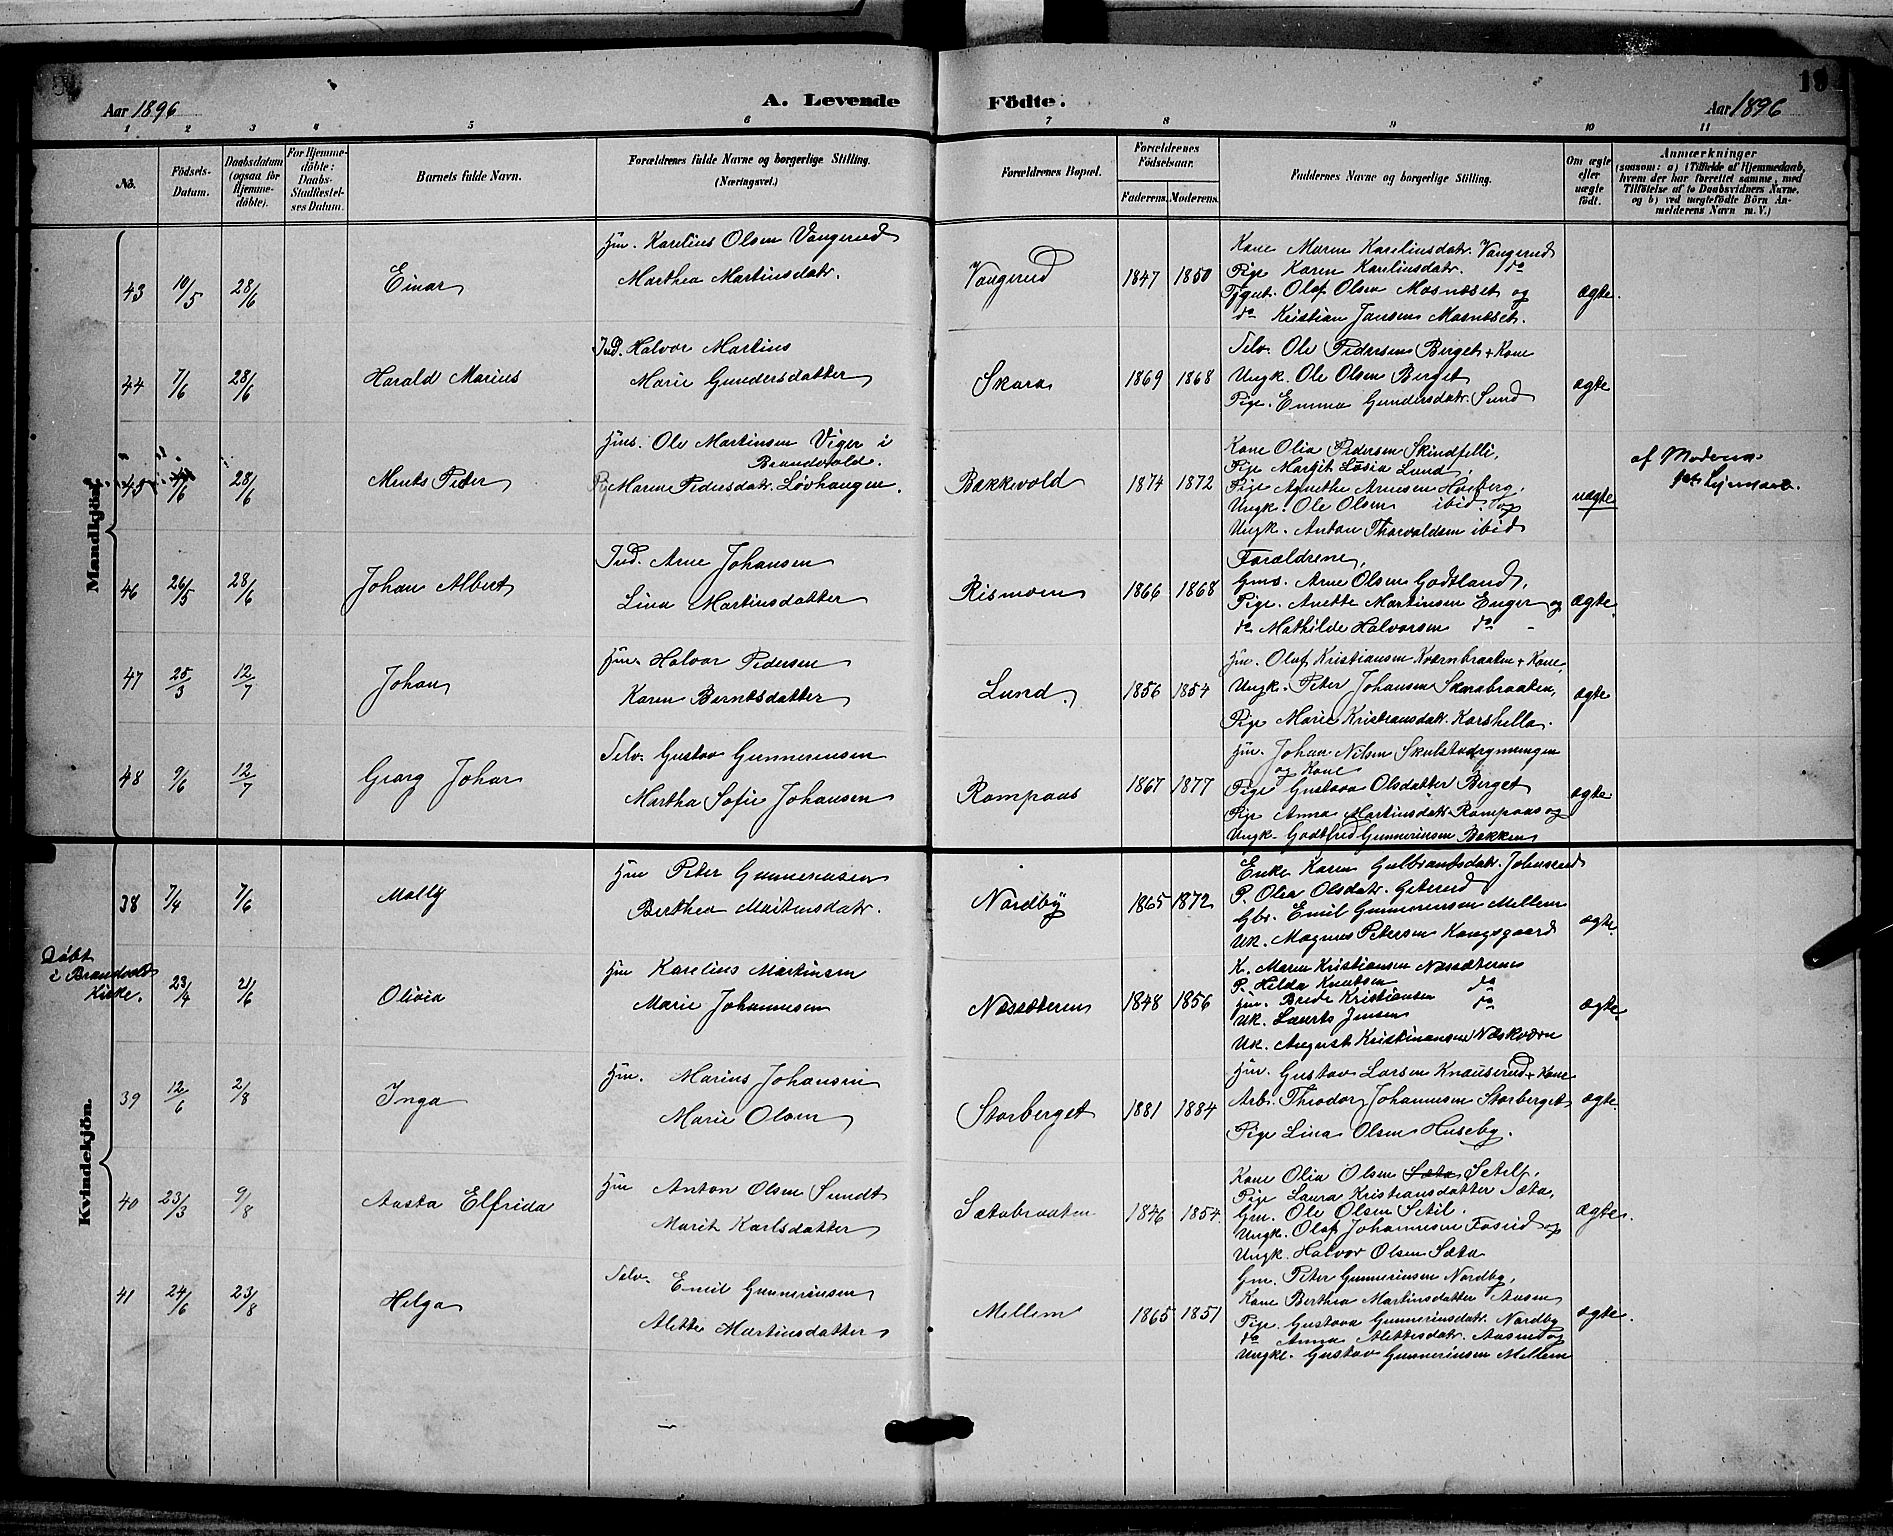 19
Aar 1896
A. Levende Födte.
Aar 1896
1 2 3 4 5 6 7 8 9 10 11
No.
Födsels-Datum.
Daabsdatum (ogsaa for Hjemme-döbte).
For Hjemme-döbte: Daabs-Stadfæstel-ses Datum.
Barnets fulde Navn.
Forældrenes fulde Navne og borgerlige Stilling. (Næringsvei.)
Forældrenes Bopæl.
Forældrenes Födselsaar.
Faderens. Moderens.
Faddernes Navne og borgerlige Stilling.
Om ægte eller uægte födt.
Anmærkninger
(saasom: a) i Tilfælde af Hjemmedaab, hvem der har forrettet samme, med Tilföielse af to Daabsvidners Navne. og b) ved uægtefödte Börn An-melderens Navn m. V.)
Mandkjön.
43 10/5 28/6 Einar
Hm. Karelius Olsen Vangerud
Marthea Martinsdatr.
Vangerud 1847 1850
Kone Maren Kareliusdatr. Vangerud
Pige Karen Kareliusdatr. do
Tjgut. Olaf Olsen Mosnæset og
do Kristian Jansen Mosnæset.
ægte.
44 7/6 28/6 Harald Marius
Ind. Halvor Martins
Marie Gundersdatter
Skara 1869 1868
Selv. Ole Pedersen Berget + Kone
Ungk. Ole Olsen Berget
Pige. Emma Gundersdatr. Sund
ægte
45 /6 28/6 Ments Peter
Hms. Ole Martinsen Viger i
Brandvold.
Pg Maren Pedersdatr. Løvhaugen.
Bakkevold 1874 1872
Kone Olia Pedersen Skindfelli,
Pige Margit Losia Lund,
Pige Agnethe Arnesen Hoeberg,
Ungk. Ole Olsen ibid. og
Ungk. Anton Thorvaldsen ibid
uægte
af Moderen
46 26/5 28/6 Johan Albert
Ind. Arne Johansen
Lina Martinsdatter
Rismoen 1866 1868
Forældrene,
Gms. Arne Olsen Godtland,
Pige. Anette Martinsen Enger og
do Mathilde Halvorsen do
ægte.
47 25/3 12/7 Johan
Hm. Halvor Pedersen
Karen Berntsdatter
Lund 1856 1854
Hm. Olaf Kristiansen Kværnbraaten + Kone
Ungk. Peter Johansen Skarabraaten,
Pige Marie Kristiansdatr. Karshella.
ægte
48 9/6 12/7 Georg Johan
Selv. Gustav Gunneriusen
Martha Sofie Johansen
Rompaas 1867 1877
Hm. Johan Nilsen Skulstadrymningen
og Kone
Pige Gustava Olsdatter Berget
Pige Anna Martinsdatr. Rompaas og
Ungk. Godtfred Gunneriusen Bakken
ægte.
Kvindekjön.
38 7/4 7/6 Molly
Hm Peter Gunneriusen
Berthea Martinsdatr.
Nordby 1865 1872
Enke Karen Gulbrandsdatr. Johnsrud
P. Olea Olsdatr. Geterud
Gbr. Emil Gunneriusen Mellem
Uk. Magnus Petersen Kongsgaard
ægte.
Døbt
i Brandvold
Kirke.
23/4 21/6 Olivia
Hm Karelius Martinsen
Marie Johannesen
Næssæteren 1848 1856
K. Maren Kristiansen Næssæteren
P. Hilda Knutsen do
Hm. Brede Kristiansen do
Uk. Laurts Jensen
Uk. August Kristiansen Næskværn
ægte.
39 12/6 2/8 Inga
Hm. Marius Johansen
Marie Olsen
Storberget 1881 1884
Hm. Gustav Larsen Knauserud + Kone
Arb. Theodor Johannesen Storberget
Pige Lina Olsen Huseby.
ægte.
40 23/3 9/8 Aasta Elfrida
Hm Anton Olsen Sundt
Marit Karlsdatter
Sætabraaten 1846 1854.
Kone Olia Olsen Sæta Setil,
Pige Laura Kristiansdatter Sæta,
Gm. Ole Olsen Setil.
Ungk. Olaf Johannesen Fosrud og
Ungk. Halvor Olsen Sæta
ægte.
41 24/6 23/8 Helga
Selv. Emil Gunneriusen
Alette Martinsdatter
Mellem 1865 1851
Gm. Peter Gunneriusen Nordby,
Kone Berthea Martinsdatter Aasen
Pige. Gustava Gunneriusdatr. Nordby
do Anna Alettesdatr. Aasen og
Ungk. Gustav Gunneriusen Mellem
ægte.